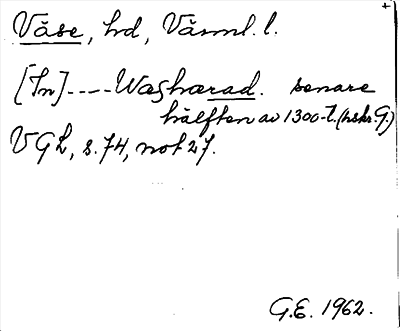 Väse, hd, Värml. l.
[In] ---- Wæshærad. senare
hälften av 1300-t. (hskr. G.)
VGL, s. 74, not 27.
G.E. 1962.